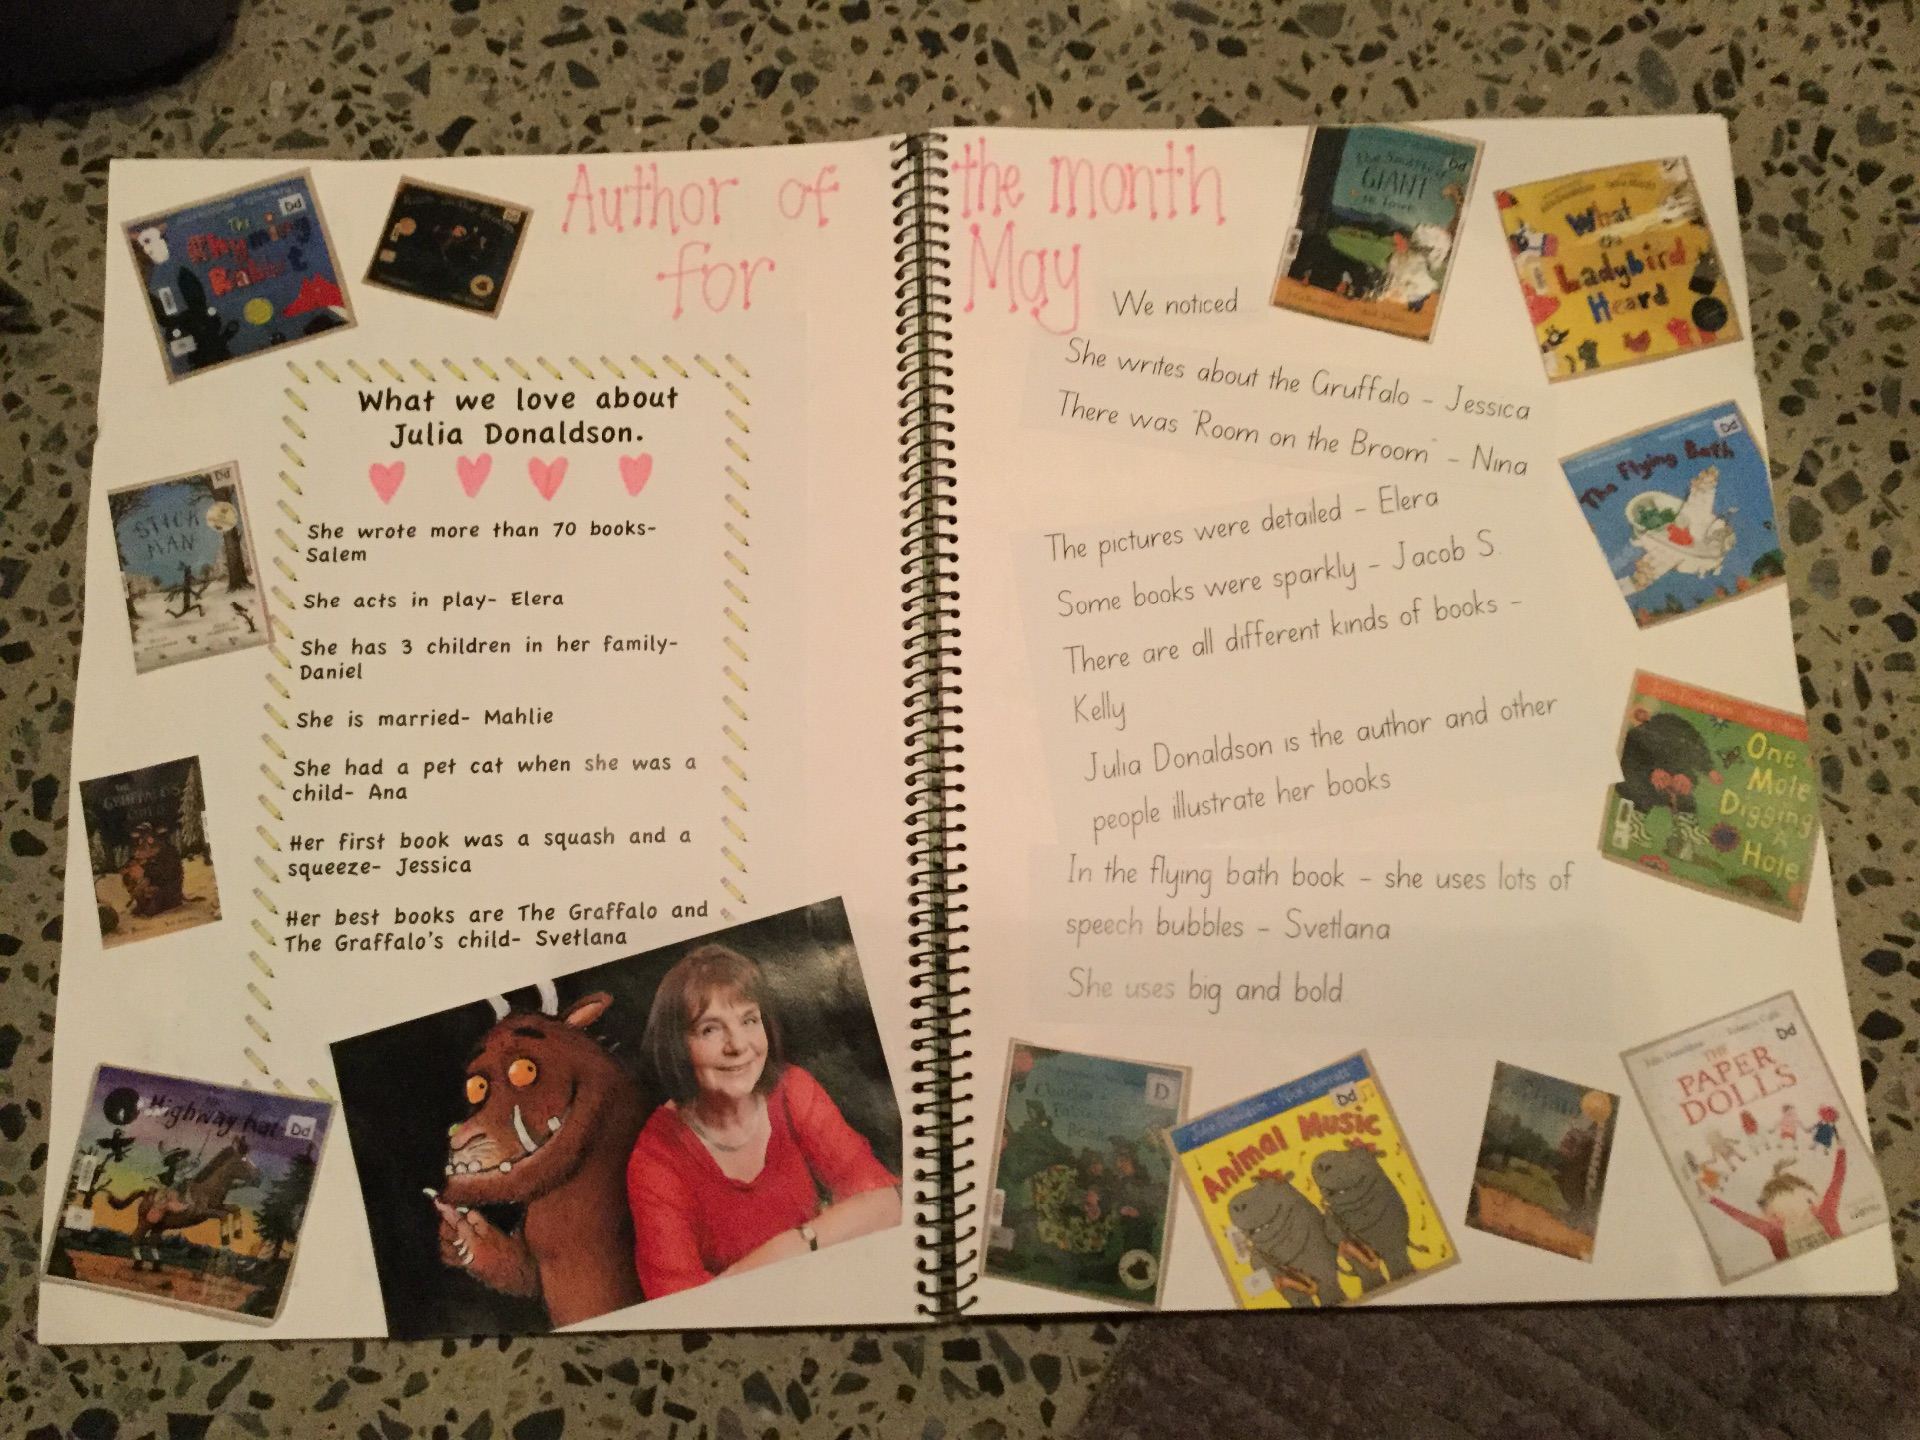 Author of the month
for May
The
Rhyming
Rabbit
Dd
What we love about
Julia Donaldson.
She wrote more than 70 books-
Salem
She acts in play- Elera
She has 3 children in her family-
Daniel
She is married- Mahlie
She had a pet cat when she was a
child- Ana
Her first book was a squash and a
squeeze- Jessica
Her best books are The Graffalo and
The Graffalo's child- Svetlana
Dd
STICK
MAN
Highway Rat
Dd
We noticed
She writes about the Gruffalo - Jessica
There was "Room on the Broom" - Nina
The pictures were detailed - Elera
Some books were sparkly - Jacob S.
There are all different kinds of books -
Kelly
Julia Donaldson is the author and other
people illustrate her books
In the flying bath book - she uses lots of
speech bubbles - Svetlana
She uses big and bold
Dd
GIANT
in Town
What
the
Ladybird
Heard
Dd
The Flying Bath
One
Mole
Digging
A
Hole
D
Dd
Animal Music
Dd
THE
PAPER
DOLLS